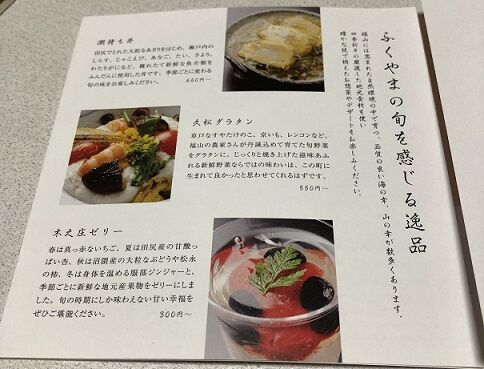 ふくやまの旬を感じる逸品
福山には恵まれた自然環境の中で育つ、品質の良い海の幸、山の幸が数多くあります。
四季折々の厳選した地元食材を使い
確かな技で拵えたお惣菜やデザートをお楽しみください。
潮待ち丼
田尻でとれた大粒なあさりをはじめ、瀬戸内の
しらす、じゃこえび、あなご、たい、さより、
わたりがになど、穫れたて新鮮な魚介類を
ふんだんに使用した丼です。季節ごとに変わる
旬の味をお楽しみください。
660円～
久松グラタン
草戸なすやたけのこ、京いも、レンコンなど、
福山の農家さんが丹誠込めて育てた旬野菜
をグラタンに。じっくりと焼き上げた滋味あふ
れる新鮮野菜ならではの味わいは、この町に
生まれて良かったと思わせてくれるはずです。
550円～
木之庄ゼリー
春は真っ赤ないちご、夏は田尻産の甘酸
っぱい杏、秋は沼隈産の大粒なぶどうや松永
の柿、冬は身体を温める服部ジンジャーと、
季節ごとに新鮮な地元産果物をゼリーにしま
した。旬の時期にしか味わえない甘い幸福を
ぜひご堪能ください。
300円～